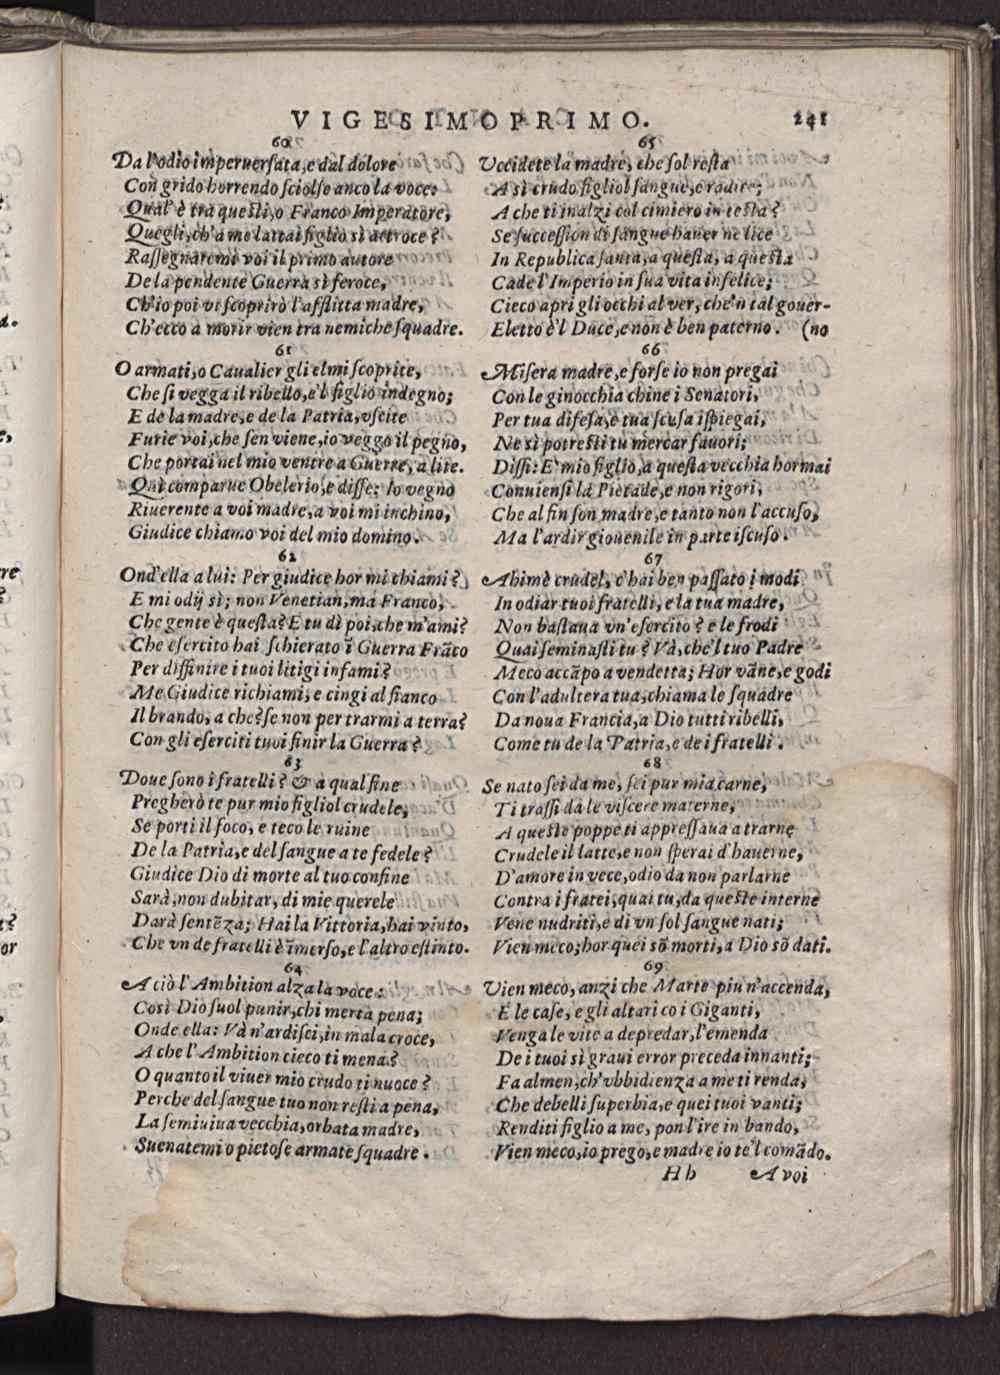 VIGESIMOPRIMO.
241
60
Da l'odio imperuerſata, e dal dolore
Con grido horrendo ſciolſe anco la voce:
Qual' è tra queſti, o Franco Imperatore,
Quegli, ch'a me lattai figlio sì attroce?
Raſſegnatemi voi il primo autore
De la pendente Guerra sì feroce,
Ch'io poi vi ſcoprirò l'afflitta madre,
Ch'ecco a morir vien tra nemiche ſquadre.
61
O armati, o Caualier gli elmi ſcoprite,
Che ſi vegga il ribello, e'l figlio indegno;
E de la madre, e de la Patria, vſcite
Furie voi, che ſen viene, io veggo il pegno,
Che portai nel mio ventre a Guerre, a lite.
Quì comparue Obelerio, e diſſe: Io vegno
Riuerente a voi madre, a voi mi inchino,
Giudice chiamo voi del mio domino.
62
Ond'ella a lui: Per giudice hor mi chiami?
E mi odij sì; non Venetian, ma Franco,
Che gente è queſta? E tu dì poi, che m'ami?
Che eſercito hai ſchierato ī Guerra Frāco
Per diffinire i tuoi litigi infami?
Me Giudice richiami; e cingi al fianco
Il brando, a che? ſe non per trarmi a terra?
Con gli eſerciti tuoi finir la Guerra?
63
Doue ſono i fratelli? & a qual fine
Pregherò te pur mio figliol crudele,
Se porti il foco, e teco le ruine
De la Patria, e del ſangue a te fedele?
Giudice Dio di morte al tuo confine
Sarà, non dubitar, di mie querele
Darà ſentēza; Hai la Vittoria, hai vinto,
Che vn de fratelli è īmerſo, e l'altro eſtinto.
64
A ciò l'Ambition alza la voce:
Così Dio ſuol punir, chi merta pena;
Onde ella: Và n'ardiſci, in mala croce,
A che l'Ambition cieco ti mena?
O quanto il viuer mio crudo ti nuoce?
Perche del ſangue tuo non reſti a pena,
La ſemiuiua vecchia, orbata madre,
Suenatemi o pietoſe armate ſquadre.
65
Vccidete la madre, che ſol reſta
A sì crudo figliol ſangue, e radice;
A che ti inalzi col cimiero in teſta?
Se ſucceſſion di ſangue hauer ne lice
In Republica ſanta, a queſta, a queſta
Cade l'Imperio in ſua vita infelice;
Cieco apri gli occhi al ver, che'n tal gouer-
Eletto è'l Duce, e non è ben paterno. (no
66
Miſera madre, e forſe io non pregai
Con le ginocchia chine i Senatori,
Per tua difeſa, e tua ſcuſa iſpiegai,
Ne sì potreſti tu mercar fauori;
Diſſi: E' mio figlio, a queſta vecchia hormai
Conuienſi la Pietade, e non rigori,
Che al fin ſon madre, e tanto non l'accuſo,
Ma l'ardir giouenile in parte iſcuſo.
67
Ahimè crudel, c'hai ben paſſato i modi
In odiar tuoi fratelli, e la tua madre,
Non baſtaua vn'eſercito? e le frodi
Quai ſeminaſti tu? Và, che'l tuo Padre
Meco accāpo a vendetta; Hor vāne, e godi
Con l'adultera tua, chiama le ſquadre
Da noua Francia, a Dio tutti ribelli,
Come tu de la Patria, e de i fratelli.
68
Se nato ſei da me, ſei pur mia carne,
Ti traſſi da le viſcere materne,
A queſte poppe ti appreſſaua a trarne
Crudele il latte, e non ſperai d'hauerne,
D'amore in vece, odio da non parlarne
Contra i fratei, quai tu, da queſte interne
Vene nudriti, e di vn ſol ſangue nati;
Vien meco; hor quei sō morti, a Dio sō dati.
69
Vien meco, anzi che Marte più n'accenda,
E le caſe, e gli altari co i Giganti,
Venga le vite a depredar, l'emenda
De i tuoi sì graui error preceda innanti;
Fa almen, ch'vbbidienza a me ti renda,
Che debelli ſuperbia, e quei tuoi vanti;
Renditi figlio a me, pon l'ire in bando,
Vien meco, io prego, e madre io te'l comādo.
Hh
A voi